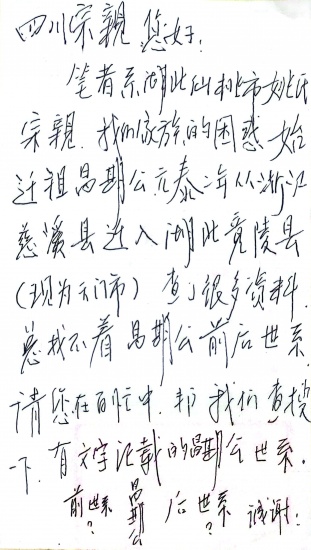 四川宗親,您好!
笔者系湖北仙桃市姚氏
宗親.我们家族的困惑,始
迁祖昌期公元泰二年从浙江
慈溪县进入湖北竟陵县
(现为天门市)查了很多资料.
总找不着昌期公前后世系.
请您在百忙中.帮我们查找
一下.有文字记载的昌期公世系.
前世系? 昌期公 后世系? 诚谢!